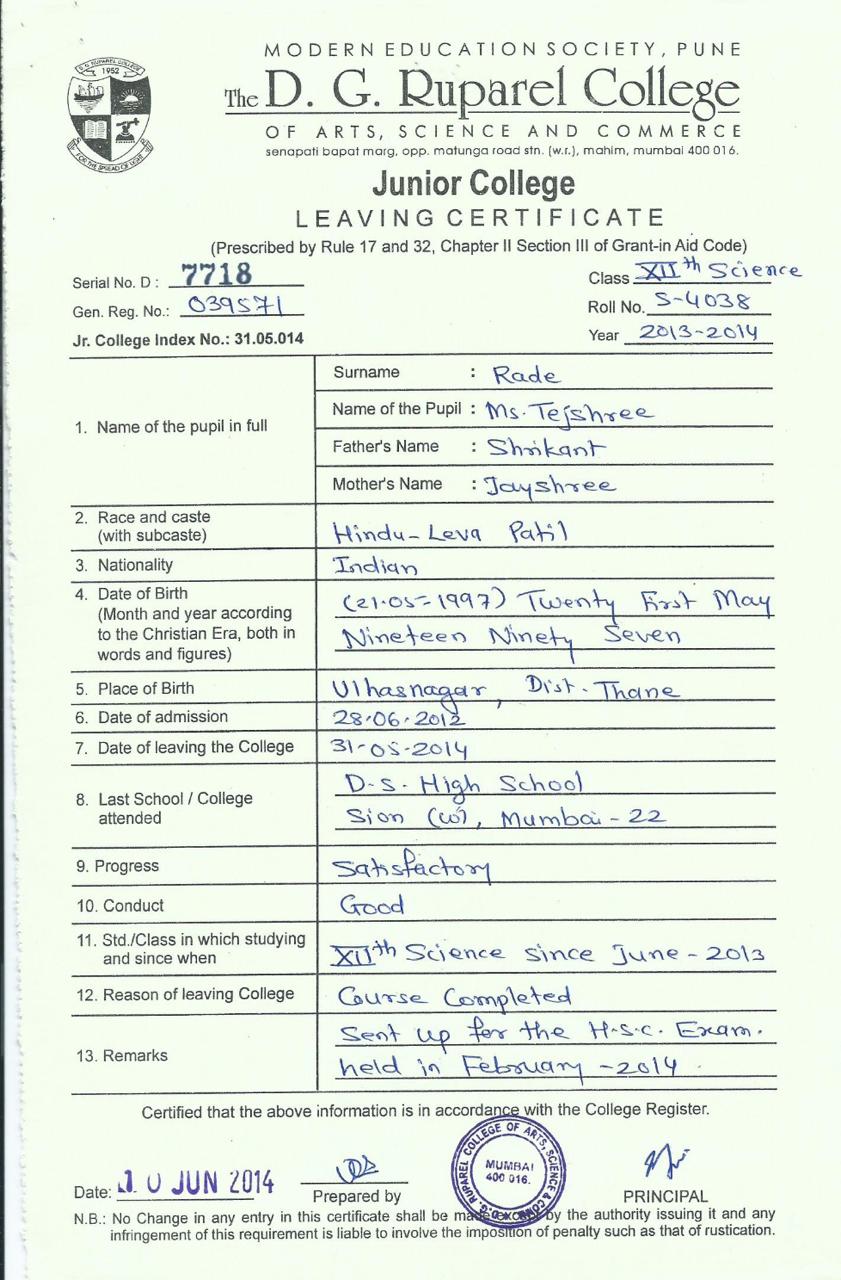 D. G. RUPAREL COLLEGE
1952
FOR THE SPREAD OF LIGHT
MODERN EDUCATION SOCIETY, PUNE
The D. G. Ruparel College
OF ARTS, SCIENCE AND COMMERCE
senapati bapat marg, opp. matunga road stn. (w.r.), mahim, mumbai 400 016.
Junior College
LEAVING CERTIFICATE
(Prescribed by Rule 17 and 32, Chapter II Section III of Grant-in Aid Code)
Serial No. D : 7718
Class XIIth Science
Gen. Reg. No.: 039571
Roll No. S-4038
Jr. College Index No.: 31.05.014
Year 2013-2014
1. Name of the pupil in full
Surname : Rade
Name of the Pupil : Ms. Tejshree
Father's Name : Shrikant
Mother's Name : Jayshree
2. Race and caste
(with subcaste)
Hindu-Leva Patil
3. Nationality
Indian
4. Date of Birth
(Month and year according
to the Christian Era, both in
words and figures)
(21.05-1997) Twenty First May
Nineteen Ninety Seven
5. Place of Birth
Ulhasnagar, Dist. Thane
6. Date of admission
28.06.2012
7. Date of leaving the College
31-05-2014
8. Last School / College
attended
D.S. High School
Sion (w), Mumbai-22
9. Progress
Satisfactory
10. Conduct
Good
11. Std./Class in which studying
and since when
XIIth Science since June-2013
12. Reason of leaving College
Course Completed
13. Remarks
Sent up for the H.S.C. Exam.
held in February-2014.
Certified that the above information is in accordance with the College Register.
Date: 10 JUN 2014
Prepared by
MUMBAI
400 016.
PRINCIPAL
N.B.: No Change in any entry in this certificate shall be made except by the authority issuing it and any
infringement of this requirement is liable to involve the imposition of penalty such as that of rustication.